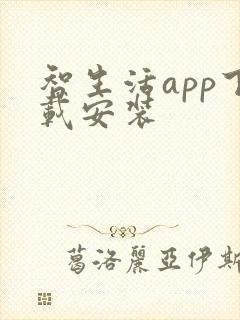 智生活app下
載安裝
葛洛麗亞伊斯